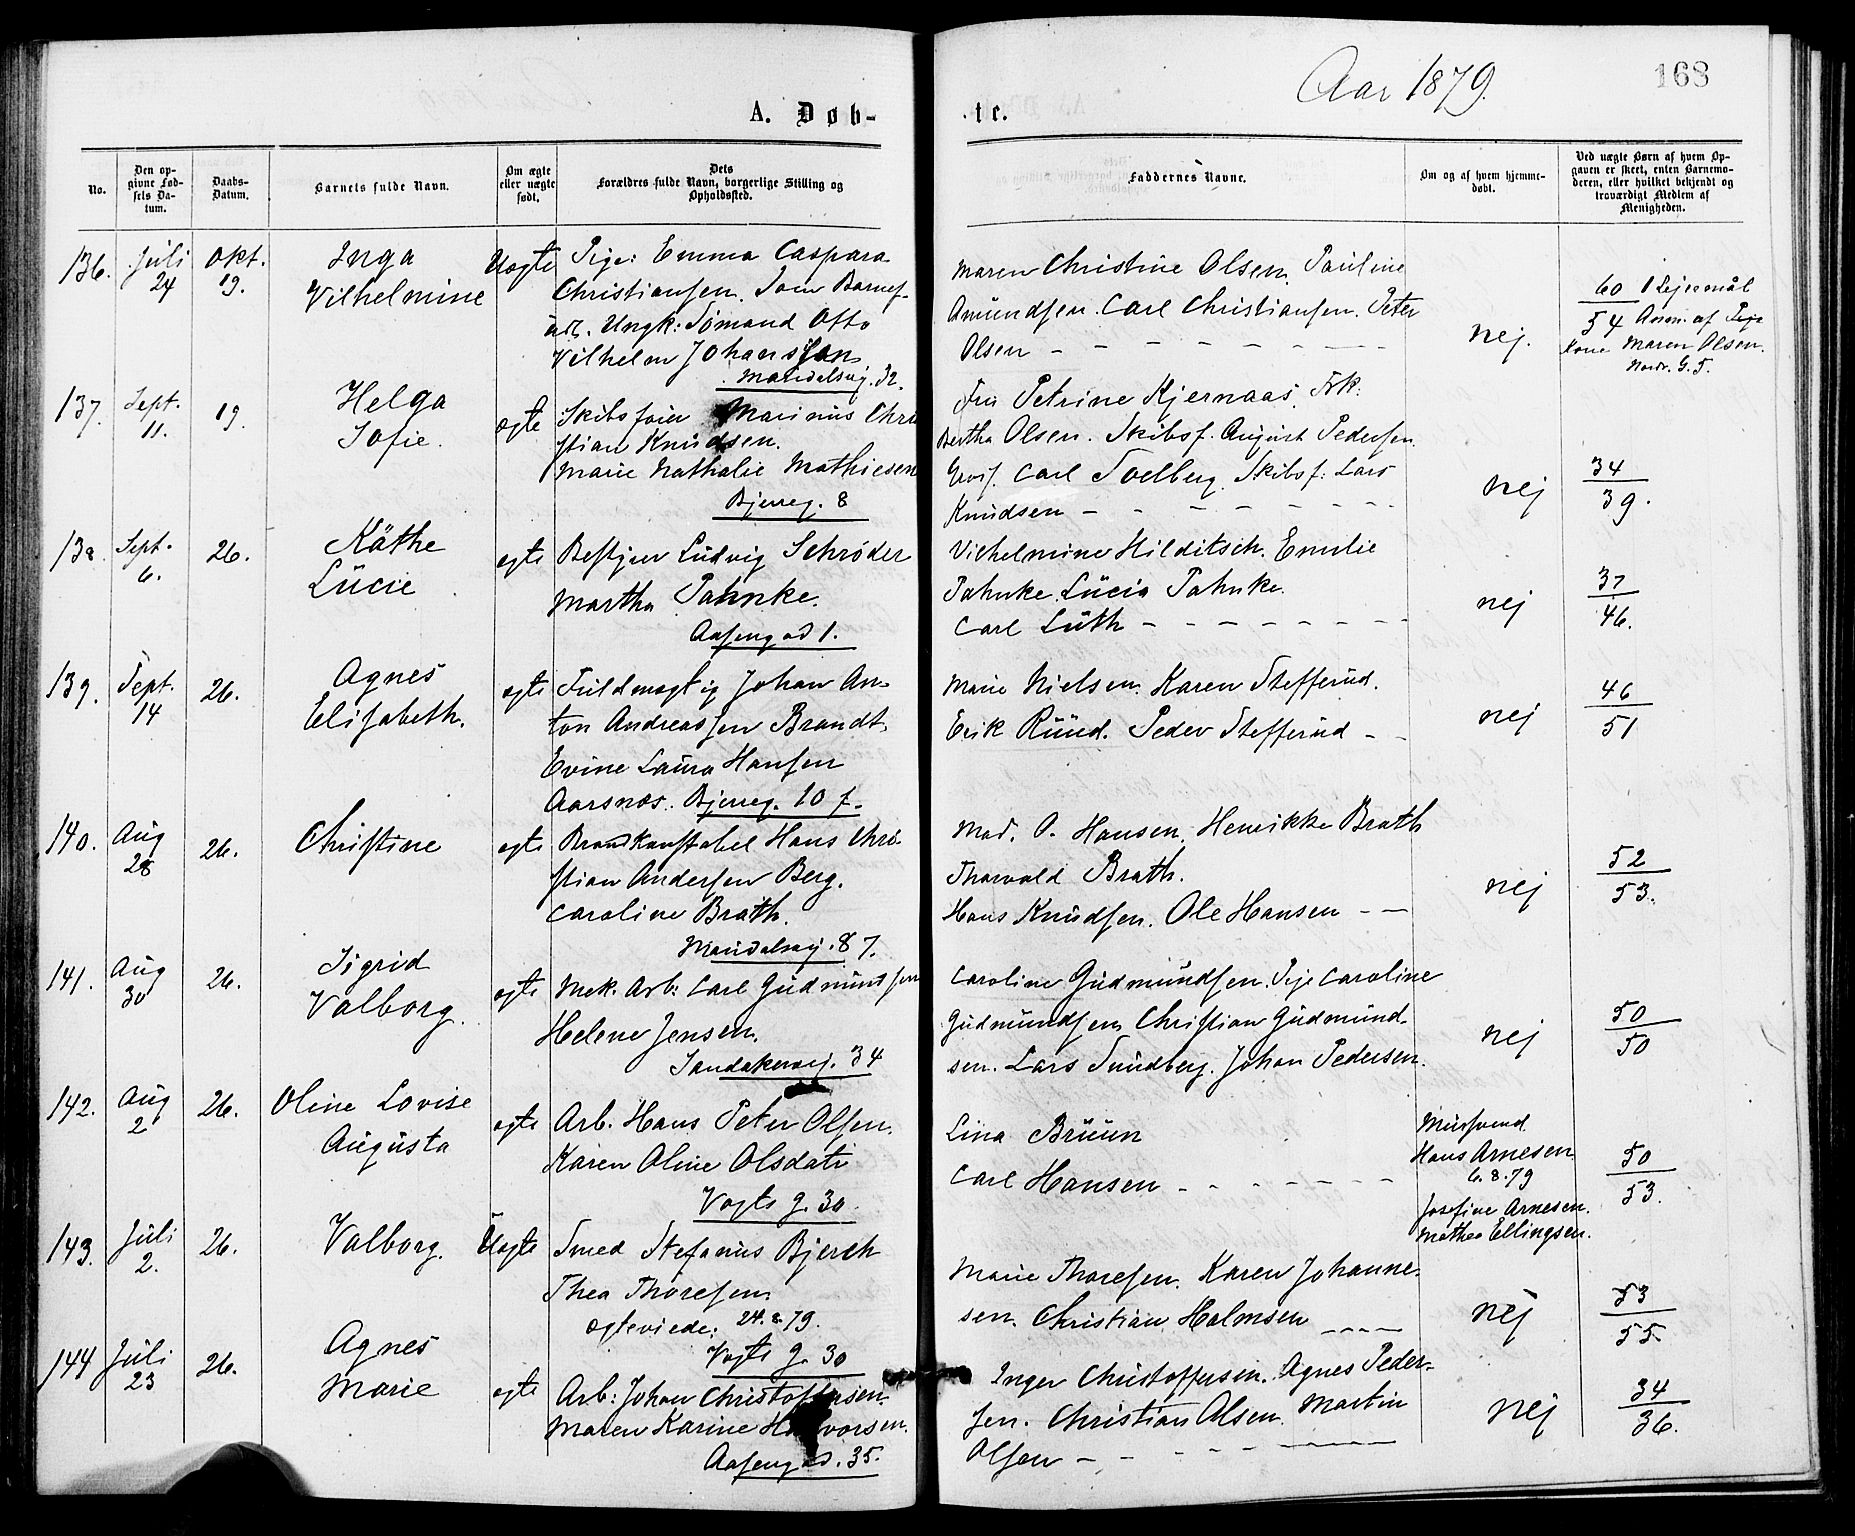 Aar 1879.
168
A. Døb-
te.
No.
Den op-
givne Fød-
sels Da-
tum.
Daabs-
Datum.
Barnets fulde Navn.
Om ægte
eller uægte
født.
Dets
Forældres fulde Navn, borgerlige Stilling og
Opholdssted.
Faddernes Navne.
Om og af hvem hjemme-
døbt.
Ved uægte Børn af hvem Op-
gaven er skeet, enten Barnemo-
deren, eller hvilket bekjendt og
troværdigt Medlem af
Menigheden.
136. Juli 24 Okt. 19.
Inga
Vilhelmine
Uægte
Pige: Emma Caspara
Christiansen. Som Barnef-
adr. Ungk: Sømand Otto
Vilhelm Johanssen
Maridalsvej. 32.
Maren Christine Olsen. Pauline
Amundsen. Carl Christiansen. Peter
Olsen
nej.
60 1 Lejermål
54 Anm. af
Kone Maren Olsen.
Nordr. G. 5.
137. Sept. 11. 19.
Helga
Sofie.
ægte
Skibsfører Marinus Chri
stian Knudsen.
Marie Nathalie Mathiesen
Bjerreg. 8
Fru Petrine Kjernaas. Frk.
Bertha Olsen. Skibsf. August Pedersen.
Carl Solberg. Skibsf. Lars
Knudsen
nej
34
39.
138. Sept. 6. 26.
Käthe
Lücie
ægte
Bestyrer Ludvig Schrøder
Martha Pahnke.
Aasengad 1.
Vilhelmine Hilditsch. Emilie
Pahnke. Lücia Pahnke.
Carl Lüth
nej
37
46.
139. Sept. 14 26.
Agnes
Elisabeth.
ægte
Fuldmægtig Johan An-
ton Andreassen Brandt.
Evine Laura Hansen
Aarsnæs. Bjerreg. 10 f.
Marie Nielsen. Karen Stefferud.
Erik Ruud. Peder Stefferud
nej
46
51
140. Aug 28 26.
Christine
ægte
Brandkonstabel Hans Chri-
stian Andersen Berg.
Caroline Brath.
Maridalsvej. 87.
Mad. O. Hansen. Henrikke Brath
Thorvald Brath.
Hans Knudsen. Ole Hansen
nej
52
53.
141. Aug 30 26.
Sigrid
Valborg.
ægte
Mek. Arb: Carl Gudmundsen
Helene Jensen.
Sandakervej. 34
Caroline Gudmundsen. Pige Caroline
Gudmundsen Christian Gudmund-
sen. Lars Sundberg. Johan Pedersen.
nej
50
50
142. Aug 2 26.
Oline Lovise
Augusta
ægte
Arb. Hans Peter Olsen.
Karen Oline Olsdatr
Vogts g. 30.
Lina Bruun
Carl Hansen
Mursvend
Hans Arnesen.
6.8.79
Josefine Arnesen.
Mathea Ellingsen.
50
53.
143. Juli 2. 26.
Valborg.
Uægte
Smed Stefanus Bjerch
Thea Thoresen.
ægteviede: 24.8.79.
Vogts g. 30
Marie Thoresen. Karen Johanne-
sen. Christian Holmsen
nej
53
55.
144 Juli 23 26.
Agnes
Marie
ægte
Arb: Johan Christoffersen.
Maren Karine Halvorsen.
Aasengad. 35.
Inger Christoffersen. Agnes Peder-
sen. Christian Olsen. Martin
Olsen
nej
34
36.